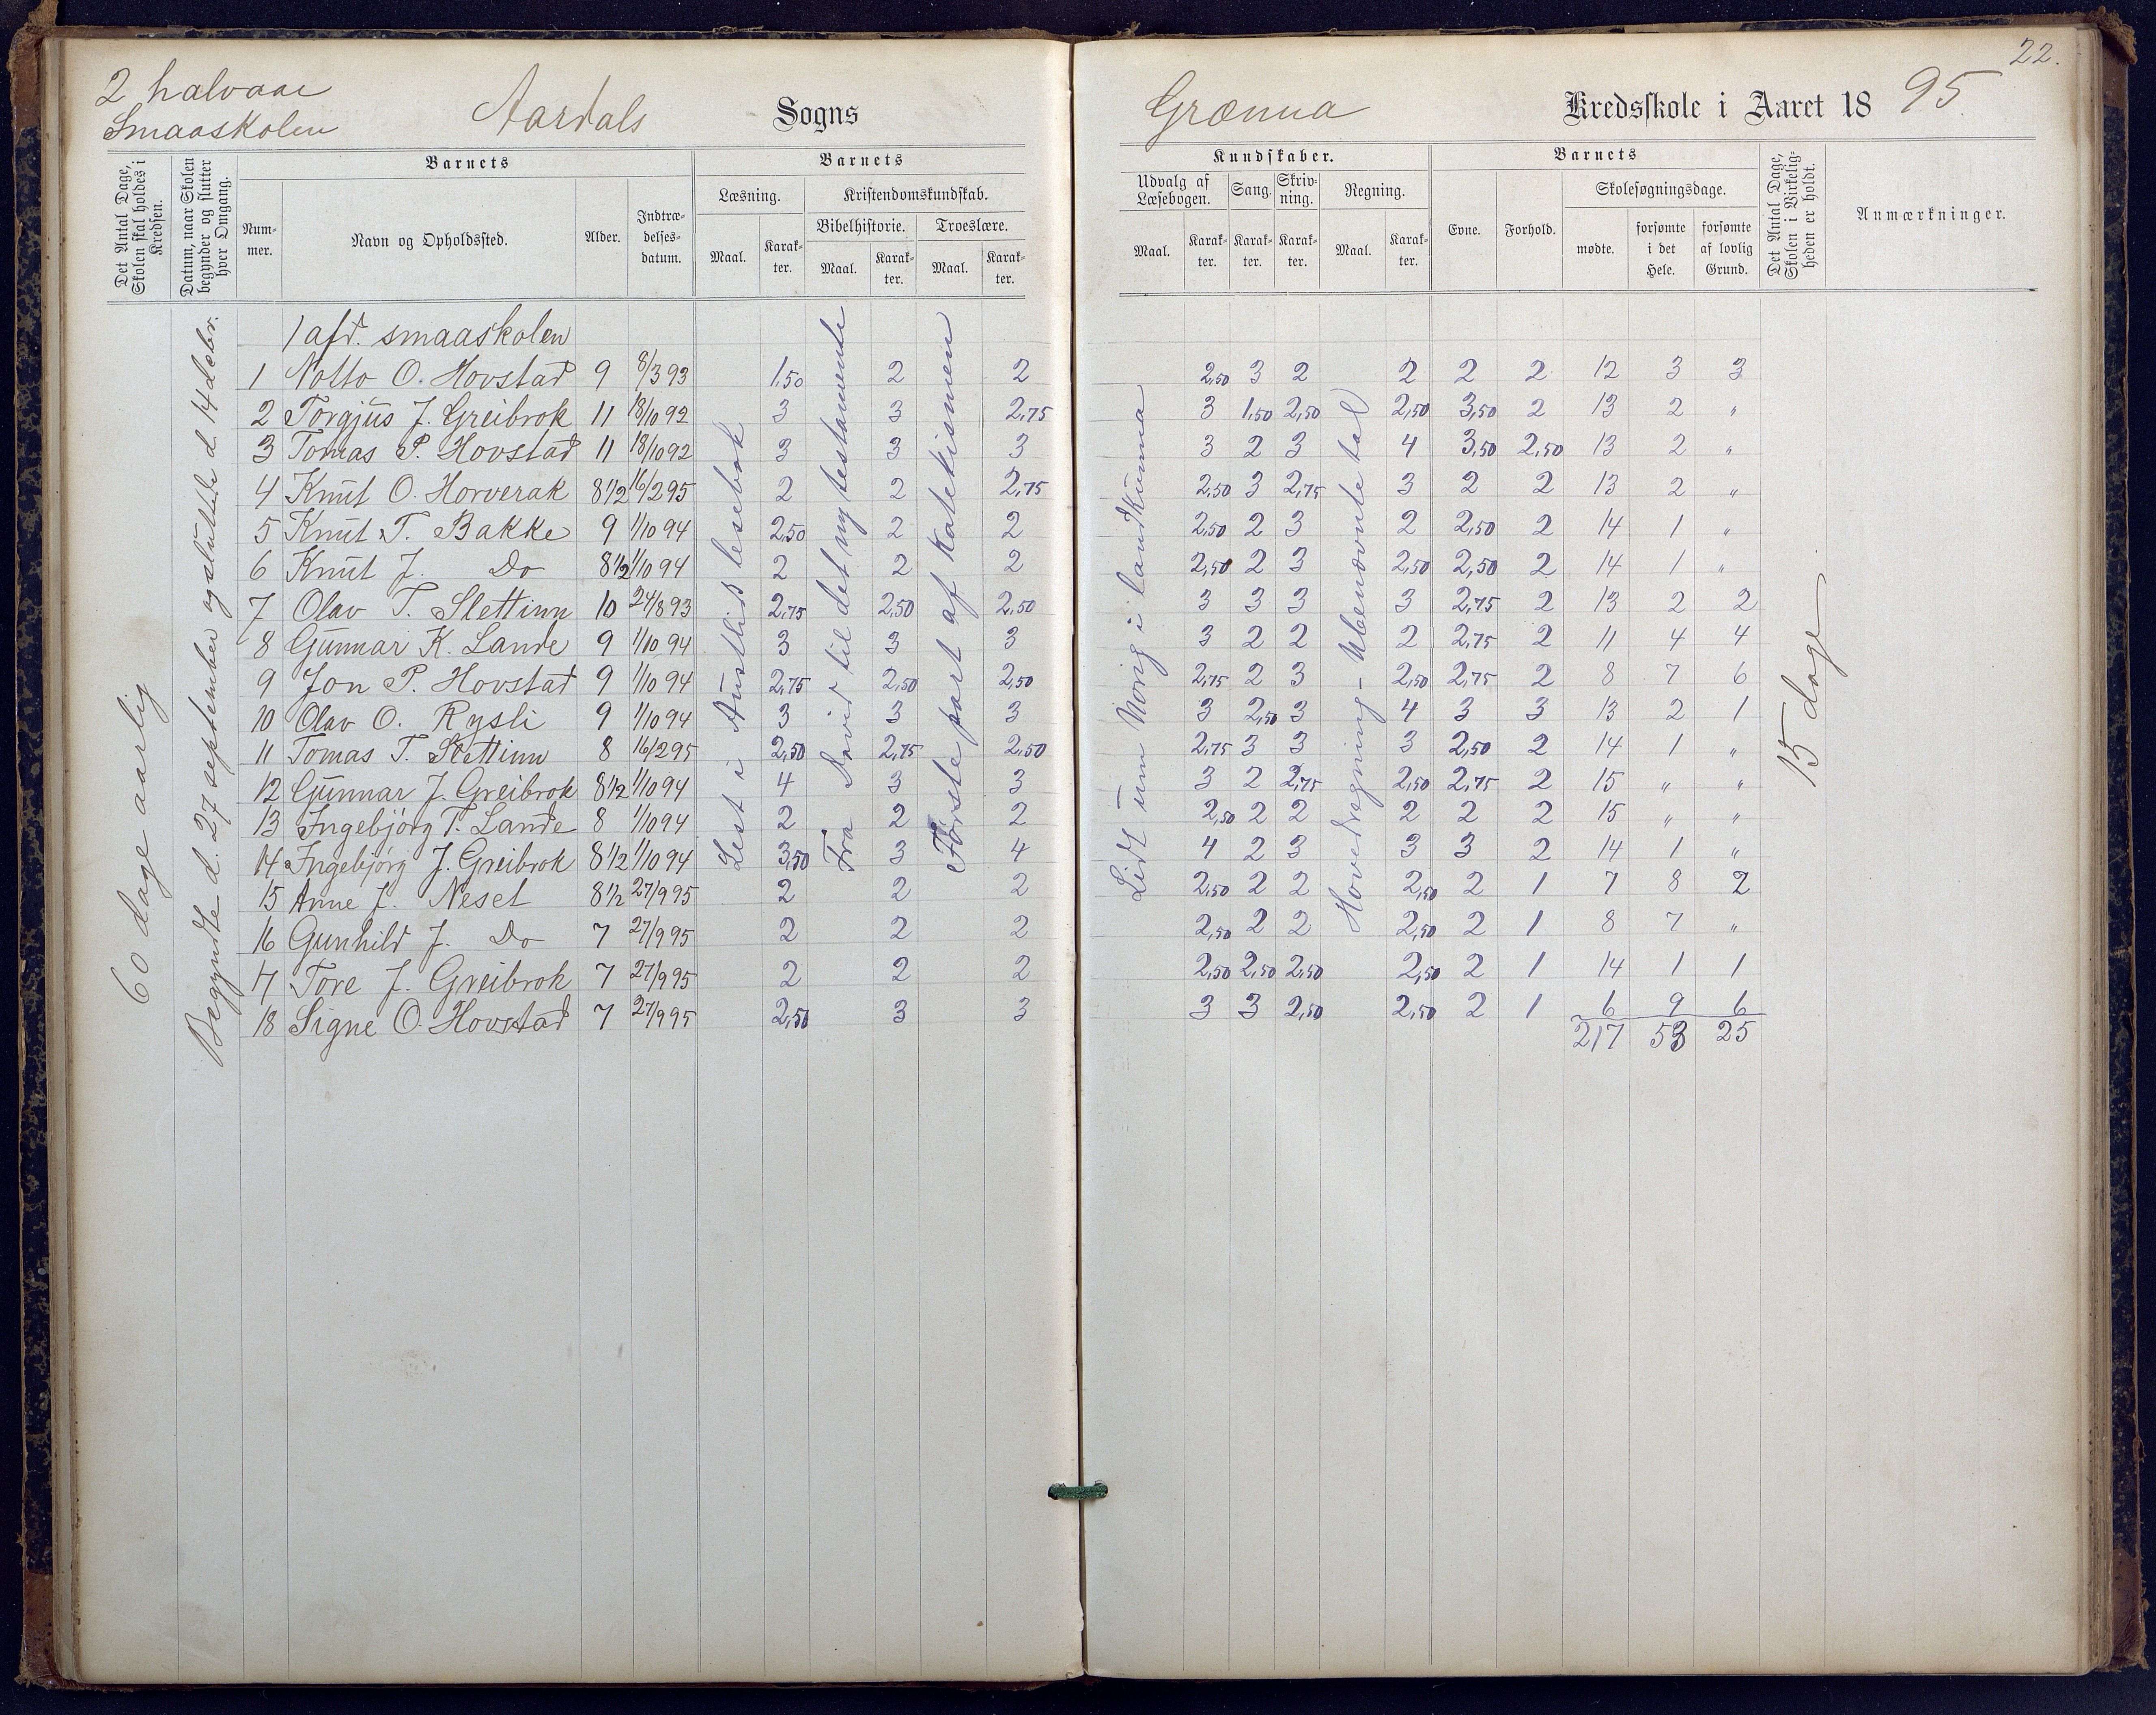 22.
2 halvaar
Smaaskolen
Aardals Sogns
Grænna Kredsskole i Aaret 18 95.
Det Antal Dage, Skolen skal holdes i Kredsen.
Datum, naar Skolen begynder og slutter hver Omgang.
Barnets
Nummer.
Navn og Opholdssted.
Alder.
Indtrædelsesdatum.
Barnets
Læsning.
Maal. Karakter.
Kristendomskundskab.
Bibelhistorie. Troeslære.
Maal. Karakter. Maal. Karakter.
Kundskaber.
Udvalg af Læsebogen. Sang. Skrivning. Regning.
Maal. Karakter. Karakter. Karakter. Maal. Karakter.
Barnets
Evne. Forhold.
Skolesøgningsdage.
mødte. forsømte i det Hele. forsømte af lovlig Grund.
Det Antal Dage, Skolen i Virkeligheden er holdt.
Anmærkninger.
60 dage aarlig
Begyndte d. 27 september og sluttede d. 14 debr.
Lest i Austlid lesebok
Fra David til det ny testamente
Første part af katekismen
Lidt um Norig i landkunna
Hovedregning - Ubenævnte tal
15 dage
1 afd. smaaskolen
1 Notto O. Hovstad 9 8/3 93 1,50 2 2 2,50 3 2 2 2 2 12 3 3
2 Torgjus J. Greibrok 11 18/10 92 3 3 2,75 3 1,50 2,50 2,50 3,50 2 13 2 "
3 Tomas P. Hovstad 11 18/10 92 3 3 3 3 2 3 4 3,50 2,50 13 2 "
4 Knut O. Horverak 8 1/2 16/2 95 2 2 2,75 2,50 3 2,75 3 2 2 13 2 "
5 Knut T. Bakke 9 1/10 94 2,50 2 2 2,50 2 3 2 2,50 2 14 1 "
6 Knut J. Do 8 1/2 1/10 94 2 2 2 2,50 2 3 2,50 2,50 2 14 1 "
7 Olav T. Slettinn 10 24/8 93 2,75 2,50 2,50 3 3 3 3 2,75 2 13 2 2
8 Gunnar K. Lande 9 1/10 94 3 3 3 3 2 2 2 2,75 2 11 4 4
9 Jon P. Hovstad 9 1/10 94 2,75 2,50 2,50 2,75 2 3 2,50 2,75 2 8 7 6
10 Olav O. Rysli 9 1/10 94 3 3 3 3 2,50 3 4 3 3 13 2 1
11 Tomas T. Slettinn 8 16/2 95 2,50 2,75 2,50 2,75 3 3 3 2,50 2 14 1 "
12 Gunnar J. Greibrok 8 1/2 1/10 94 4 3 3 3 2 2,75 2,50 2,75 2 15 " "
13 Ingebjörg T. Lande 8 1/10 94 2 2 2 2,50 2 2 2 2 2 15 " "
14 Ingebjörg J. Greibrok 8 1/2 1/10 94 3,50 3 4 4 2 3 3 3 2 14 1 "
15 Anne J. Neset 8 1/2 27/9 95 2 2 2 2,50 2 2 2,50 2 1 7 8 2
16 Gunhild J. Do 7 27/9 95 2 2 2 2,50 2 2 2,50 2 1 8 7 "
17 Tore J. Greibrok 7 27/9 95 2 2 2 2,50 2,50 2,50 2,50 2 1 14 1 1
18 Signe O. Hovstad 7 27/9 95 2,50 3 3 3 3 2,50 2,50 2 1 6 9 6
217 53 25